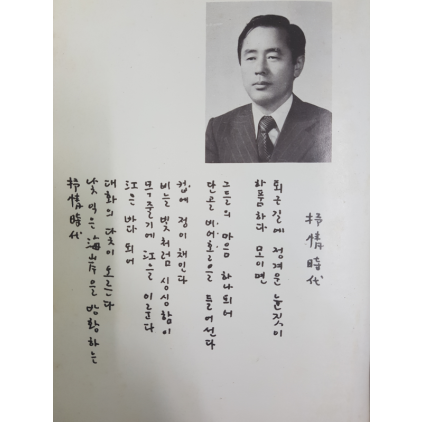 抒情時代
퇴근 길에 정겨운 눈짓이
하품하다 모이면
그들의 마음 하나되어
단골 비어홀을 들어선다
컵에 정이 채인다
비늘 빛처럼 싱싱함이
목줄기에 江을 이룬다
江은 바다 되어
대화의 다 오르다
낯 익은 海岸을 방황하는
抒情時代